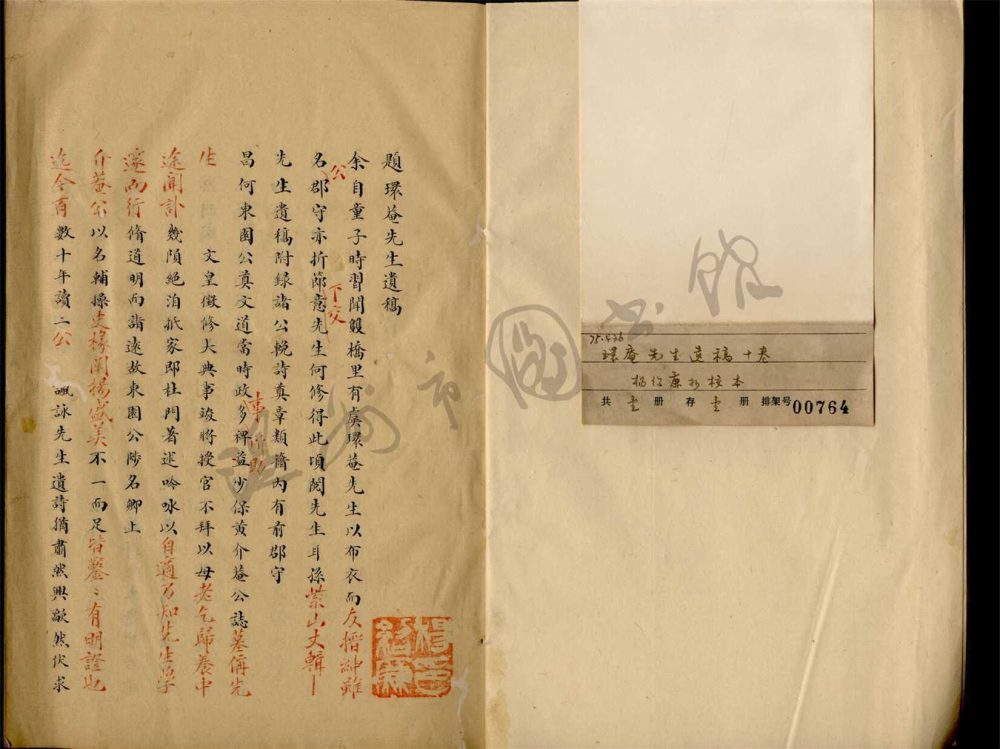 題環菴先生遺稿
余自童子時習聞覩橋里有虞環菴先生以布衣而友搢紳雖
名公郡守亦折節下交意先生何修得此頃閱先生耳孫紫山丈輯
先生遺稿附録諸公輓詩真章類籍內有前郡守
昌何東園公奠文道當時政事多裨益少保黃介菴公誌墓偁先
生 文皇徵修大典事竣將授官不拜以母老乞歸養中
途聞訃幾隕絕洎抵家郎杜門著述吟咏以自適乃知先生學
邃而行脩道明而詣遠故東園公陟名卿上
介菴公以名輔操史椽闡揚盛美不一而足皆鑿鑿有明證也
迄今百數十年讀二公 諷詠先生遺詩猶肅然興歘然伏求
溫州市圖書館
75.4.26
環庵先生遺稿 十卷
楊紹廉抄校本
共 壹 冊 存 壹 冊 排架号 00764